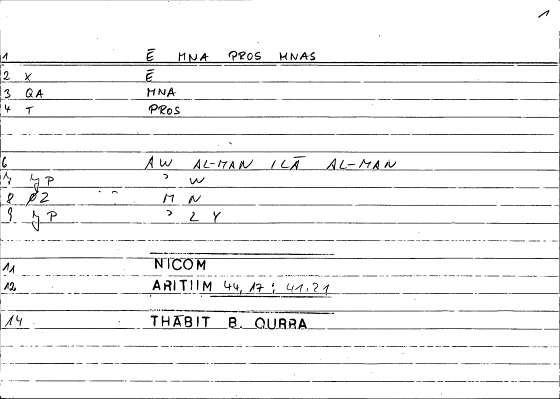 1
1 Ē MNA PROS MNAS
2 X Ē
3 QA MNA
4 T PROS
6 AW AL-MAN ILĀ AL-MAN
7 JP ʾ W
8 ØZ M N
9 JP ʾ L Y
11 NICOM
12 ARITIIM 44,17 : 41.21
14 THABIT B. QURRA